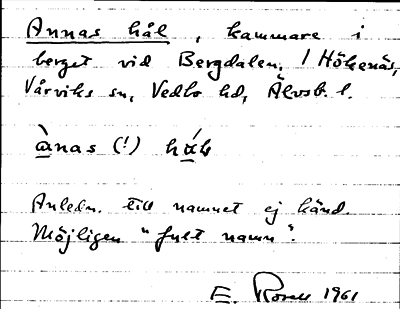 Annas hål, kammare i
berget vid Bergdalen, / Hökenäs,
Vårviks sn, Vedbo hd, Älvsb. l.
ànas (!) hál
Anledn. till namnet ej känd.
Möjligen "fult namn".
E. Rosell 1961